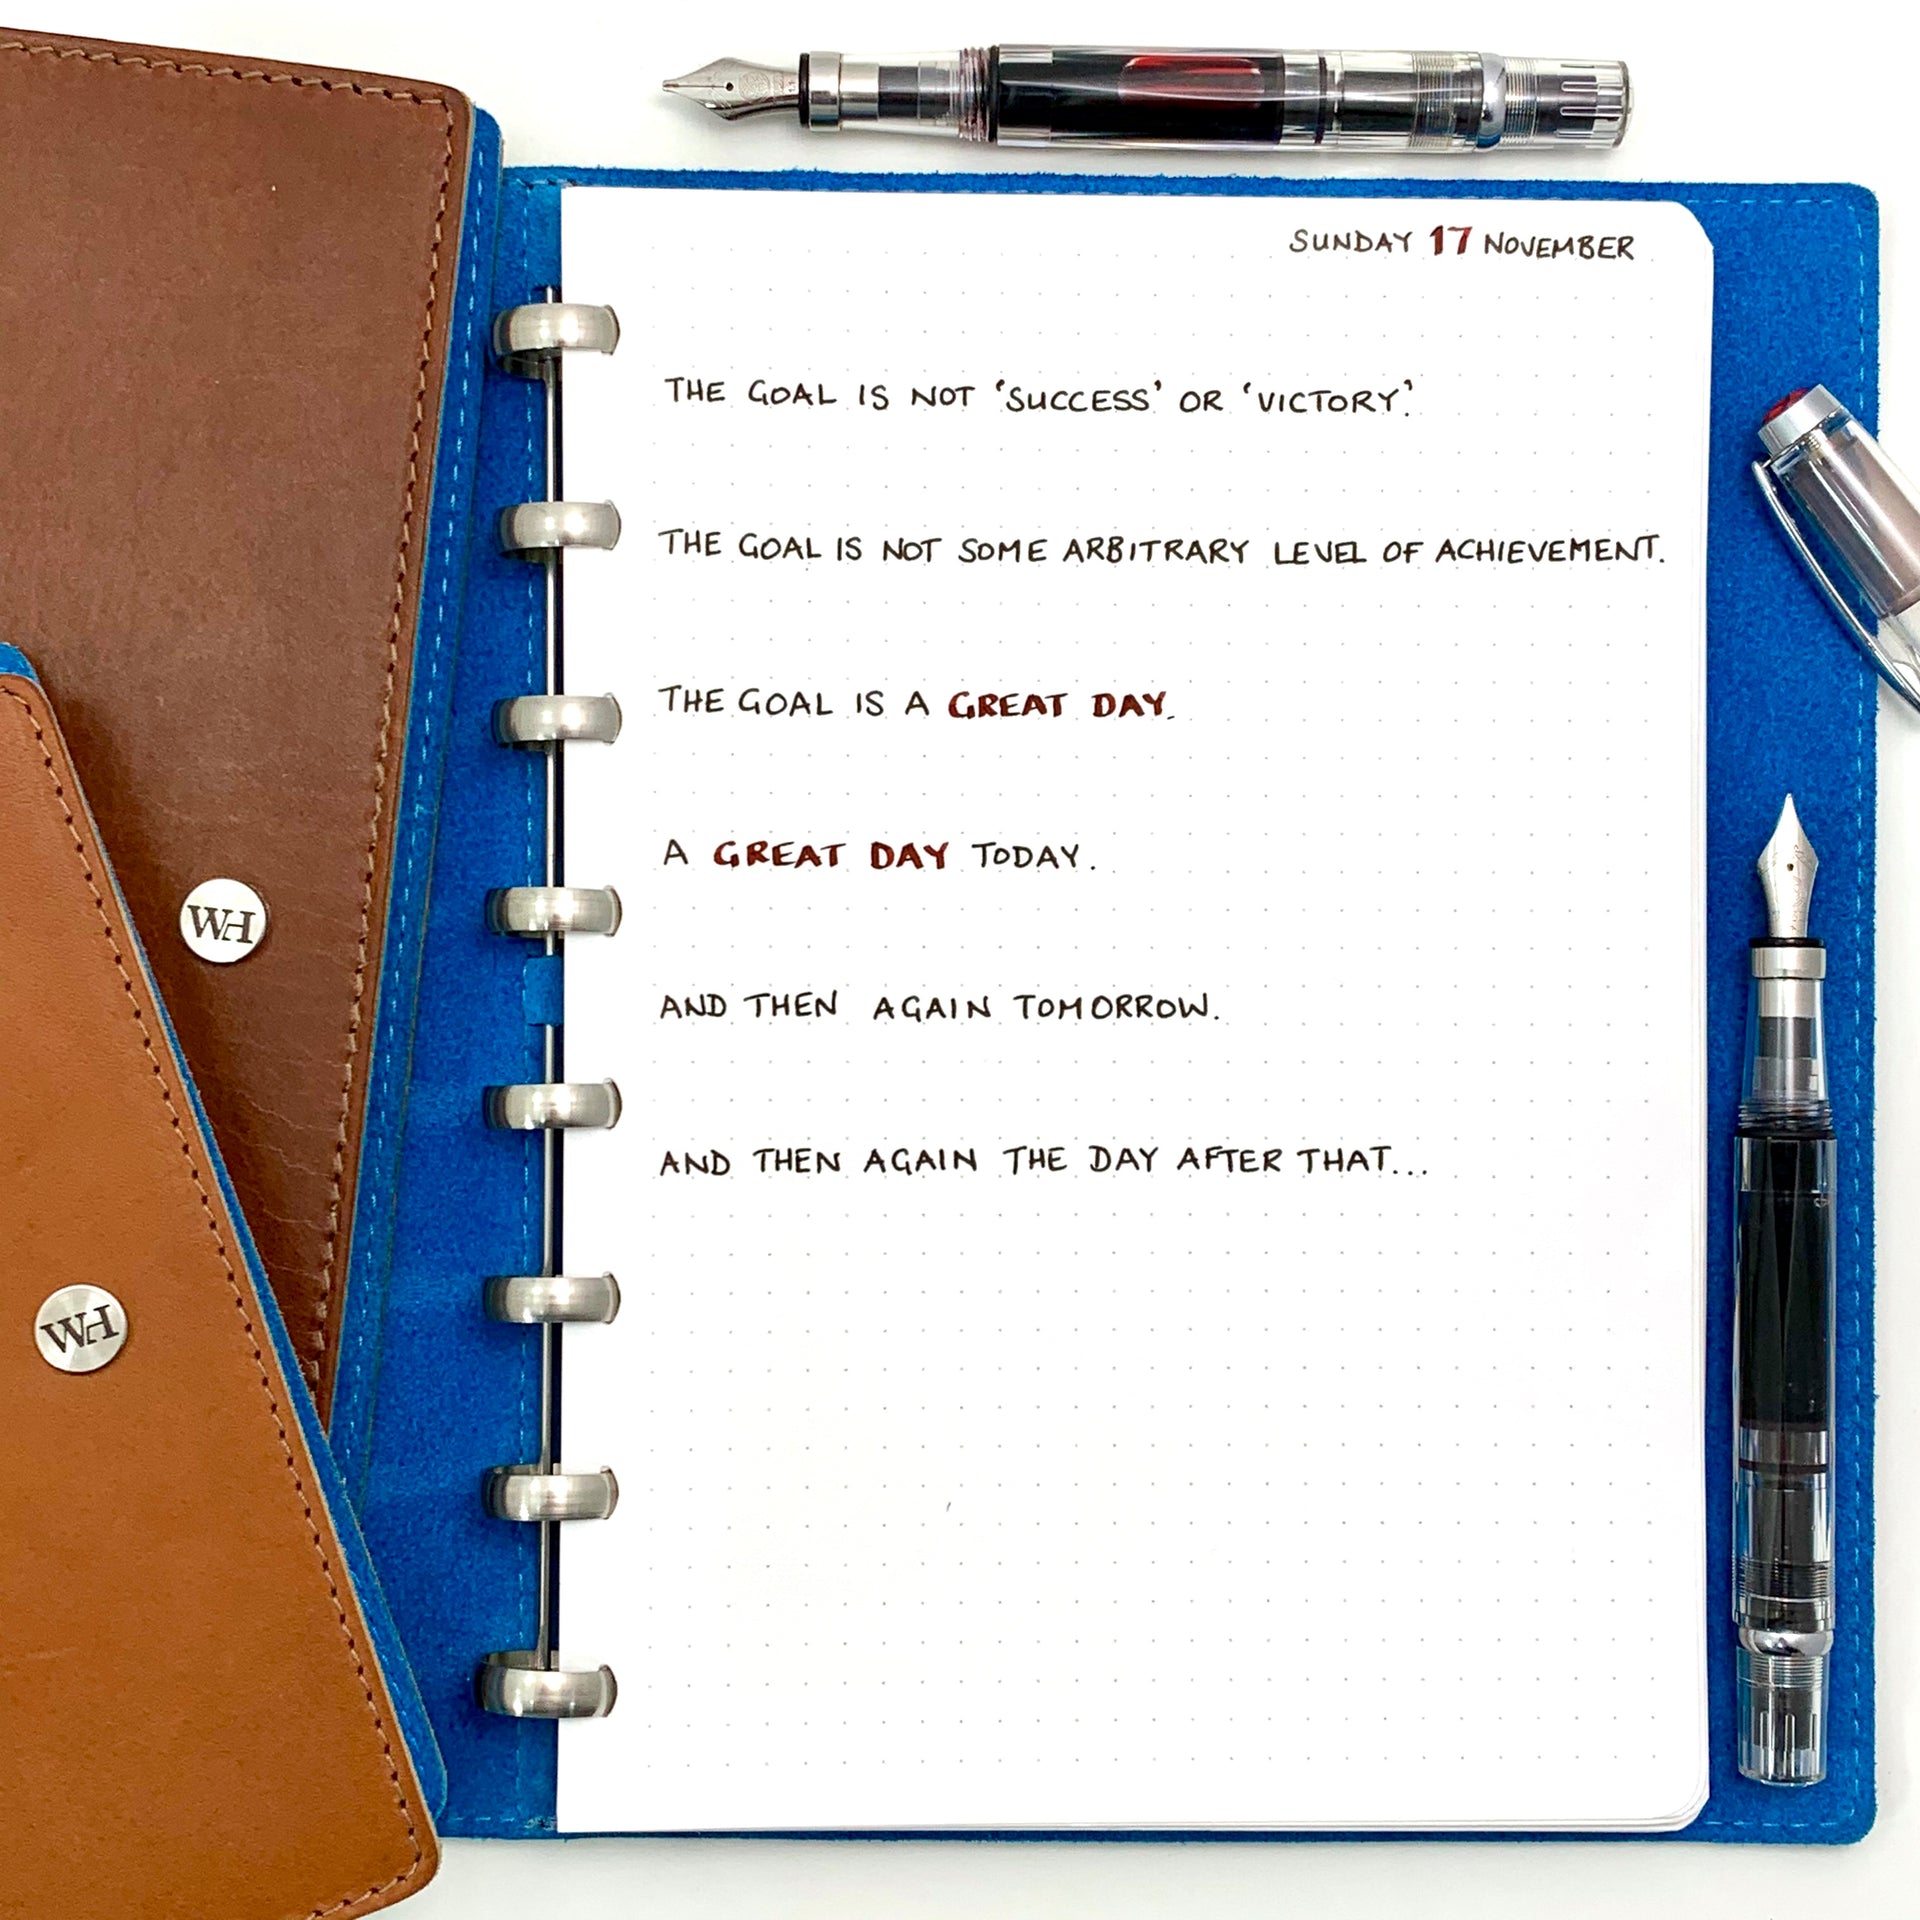 SUNDAY 17 NOVEMBER
THE GOAL IS NOT ‘SUCCESS’ OR ‘VICTORY’.
THE GOAL IS NOT SOME ARBITRARY LEVEL OF ACHIEVEMENT.
THE GOAL IS A GREAT DAY.
A GREAT DAY TODAY.
AND THEN AGAIN TOMORROW.
AND THEN AGAIN THE DAY AFTER THAT...
WH
WH